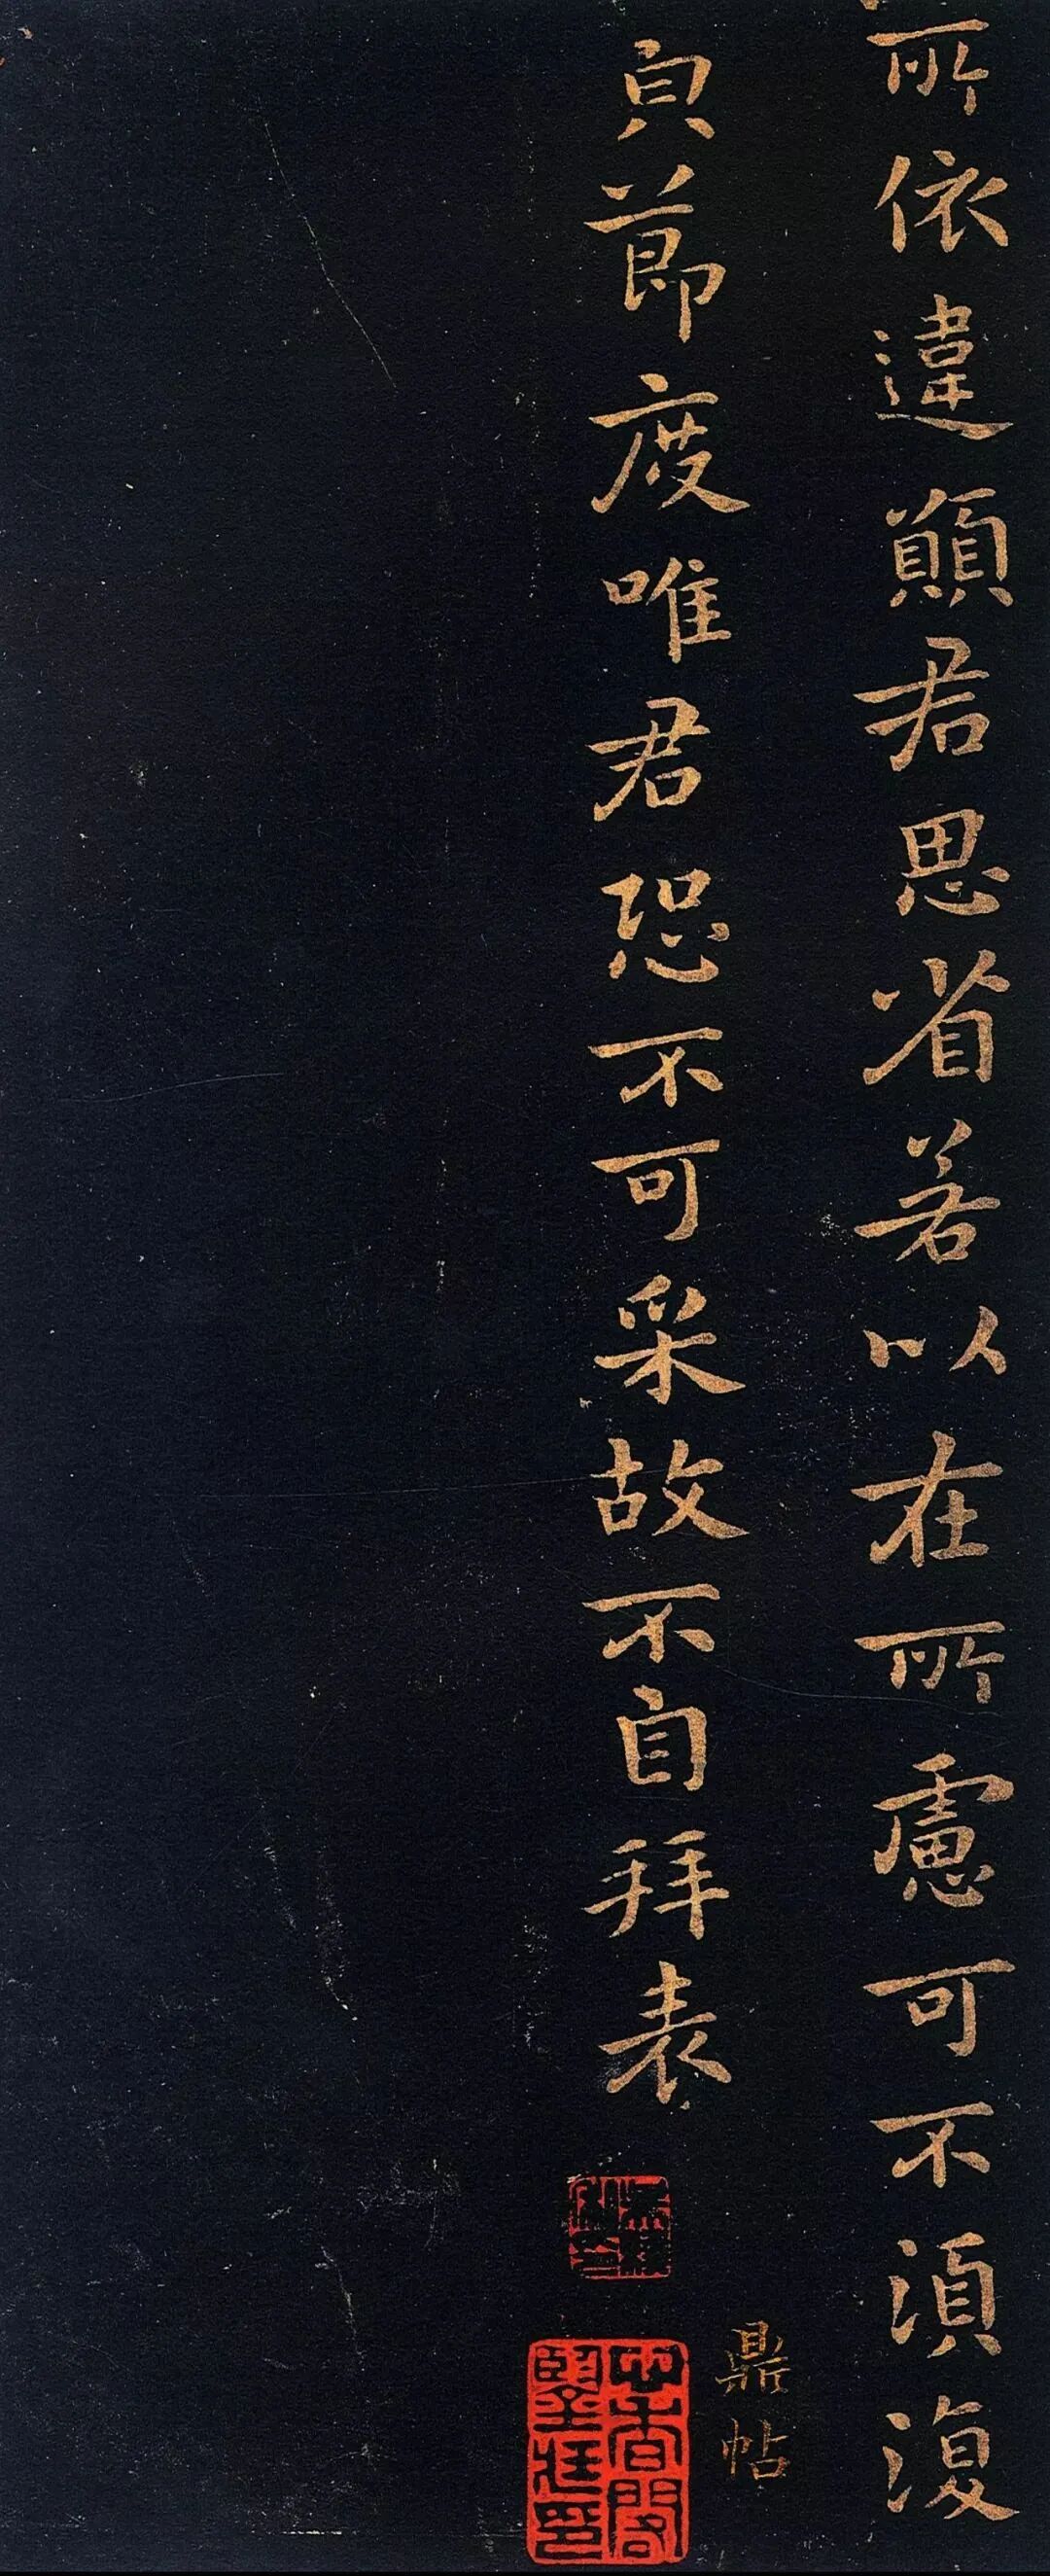 所依違願君思省若以在所慮可不須復
皃節度唯君恐不可采故不自拜表
鼎帖